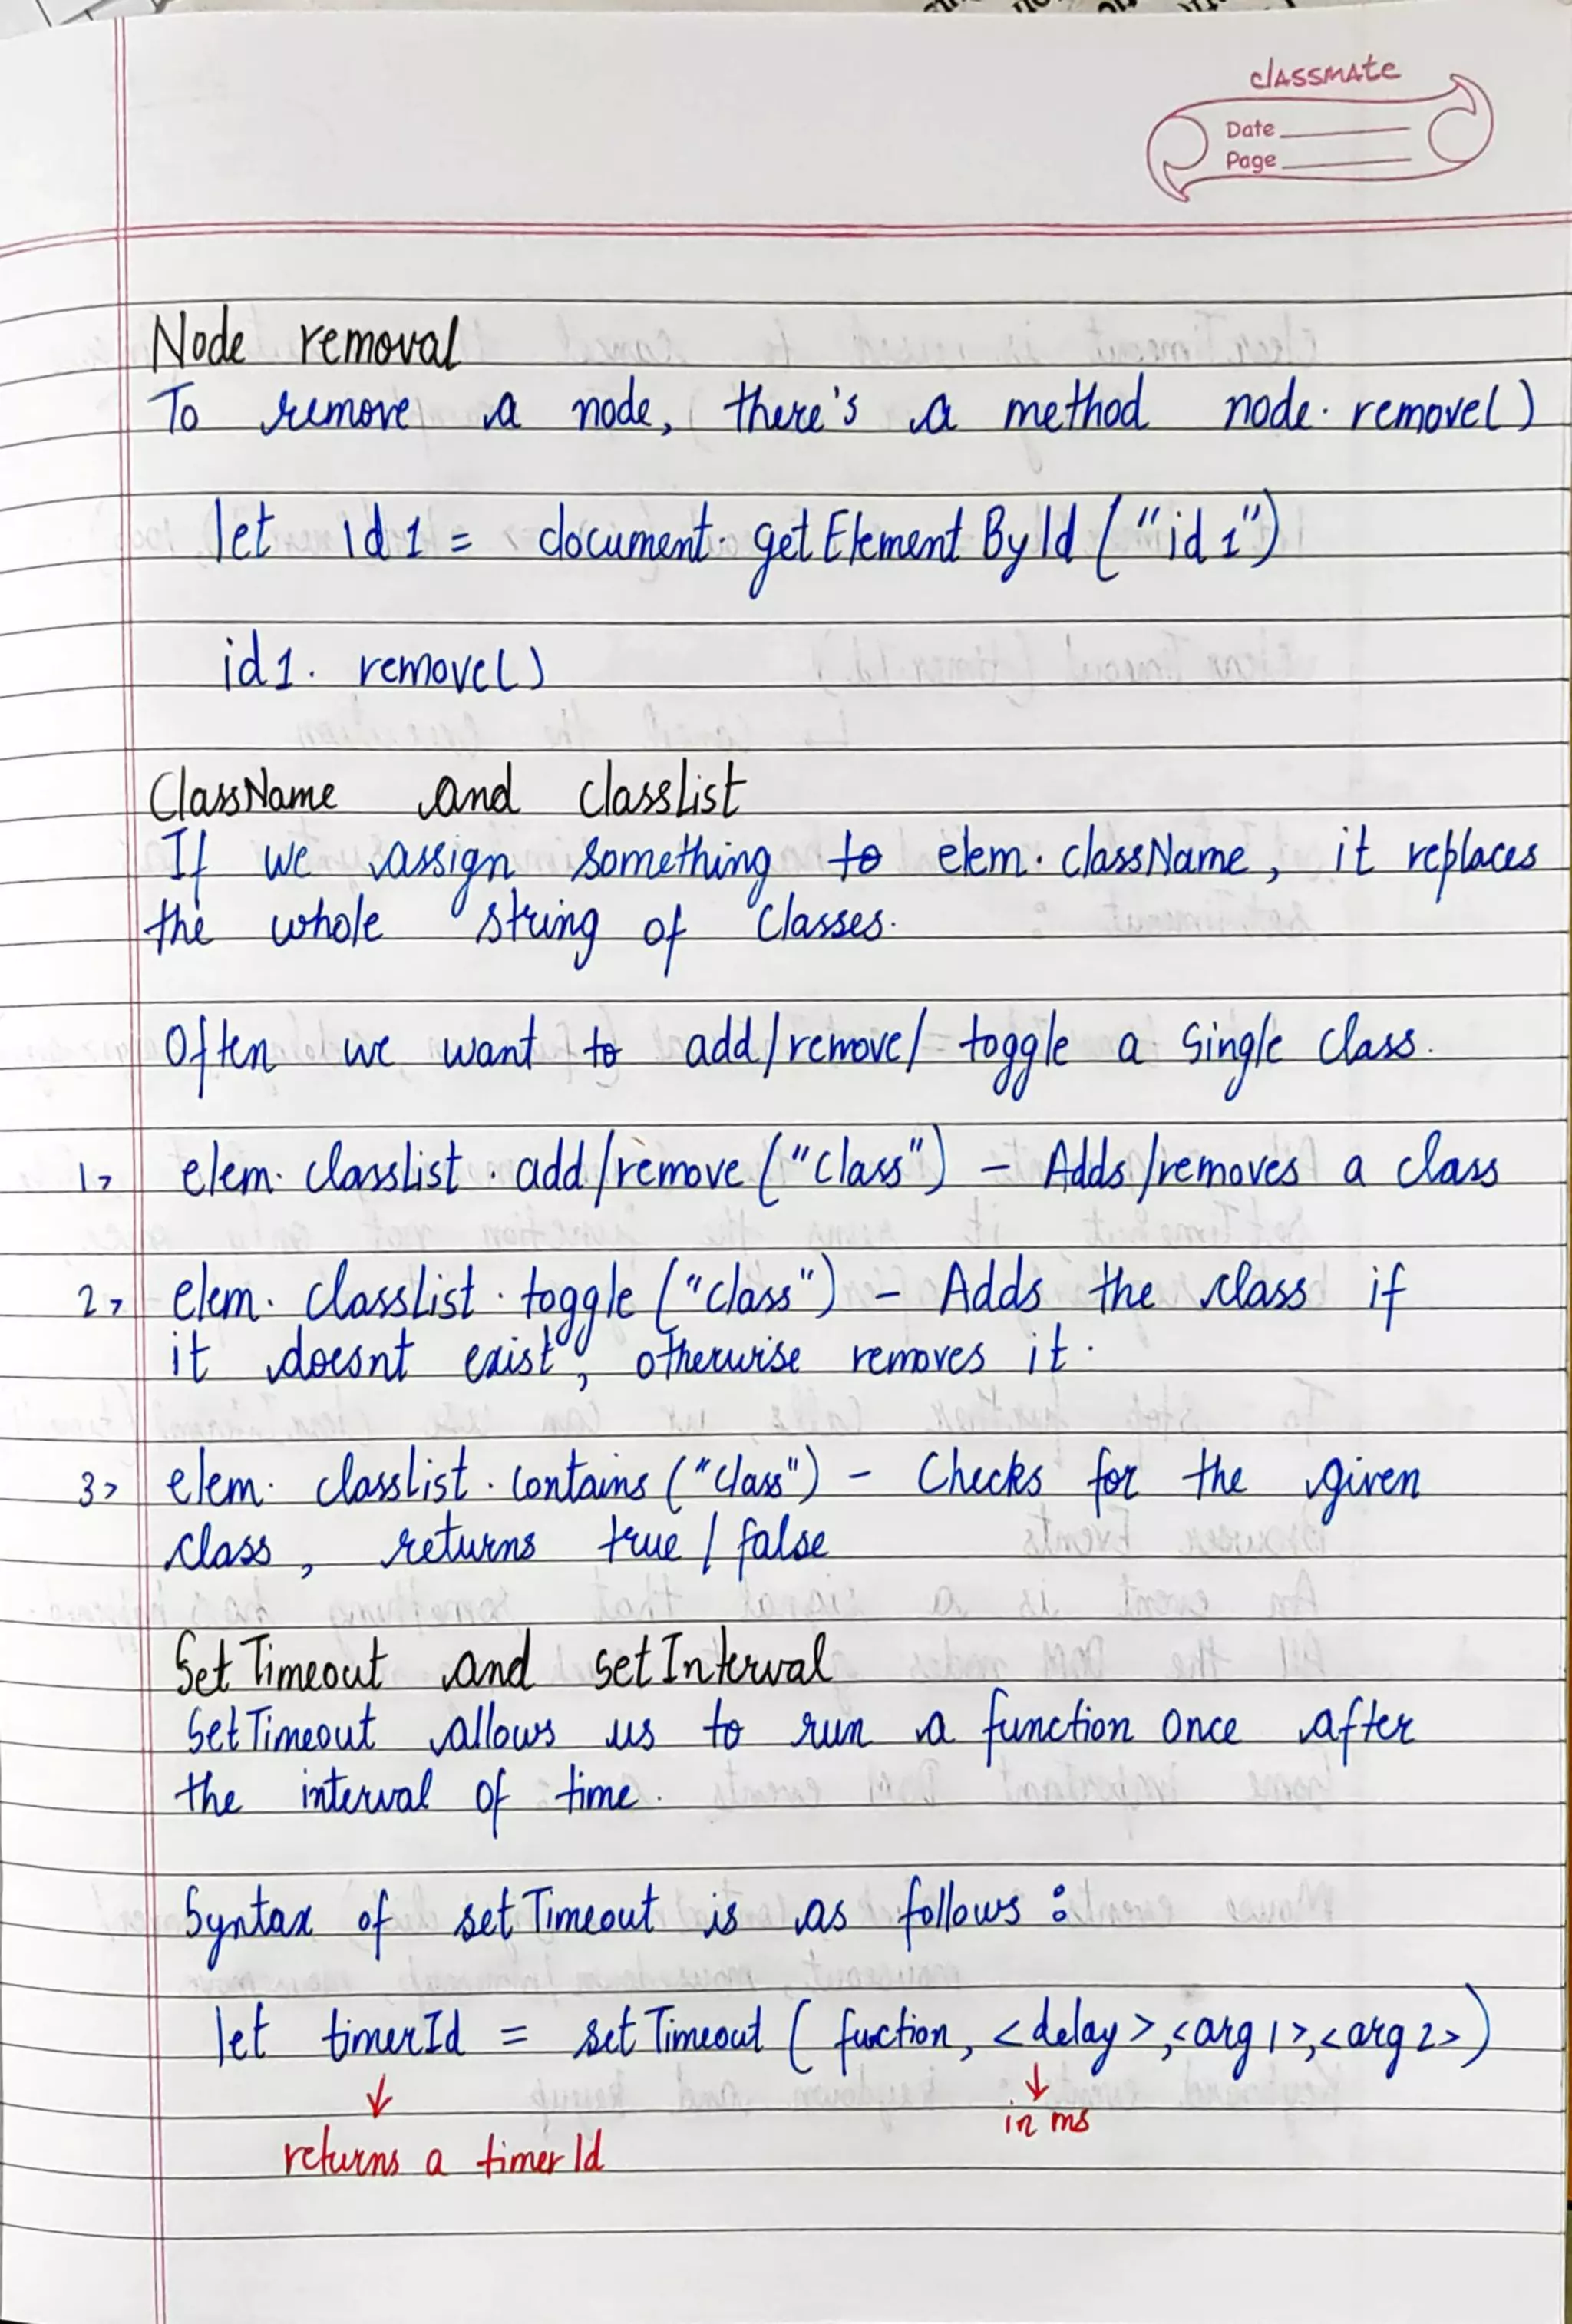 classmate
Date
Page
Node removal
To remove a node, there's a method node.remove()
let id1 = document.getElementById("id1")
id1.remove()
ClassName and classList
If we assign something to elem.className, it replaces
the whole string of classes.
Often we want to add/remove/toggle a single class.
1> elem.classList.add/remove("class") - Adds/removes a class
2> elem.classList.toggle("class") - Adds the class if
it doesnt exist, otherwise removes it.
3> elem.classList.contains("class") - Checks for the given
class, returns true/false
SetTimeout and setInterval
SetTimeout allows us to run a function once after
the interval of time.
Syntax of setTimeout is as follows :
let timerId = setTimeout(fuction, <delay>,<arg1>,<arg2>)
↓ ↓
in ms
returns a timerId